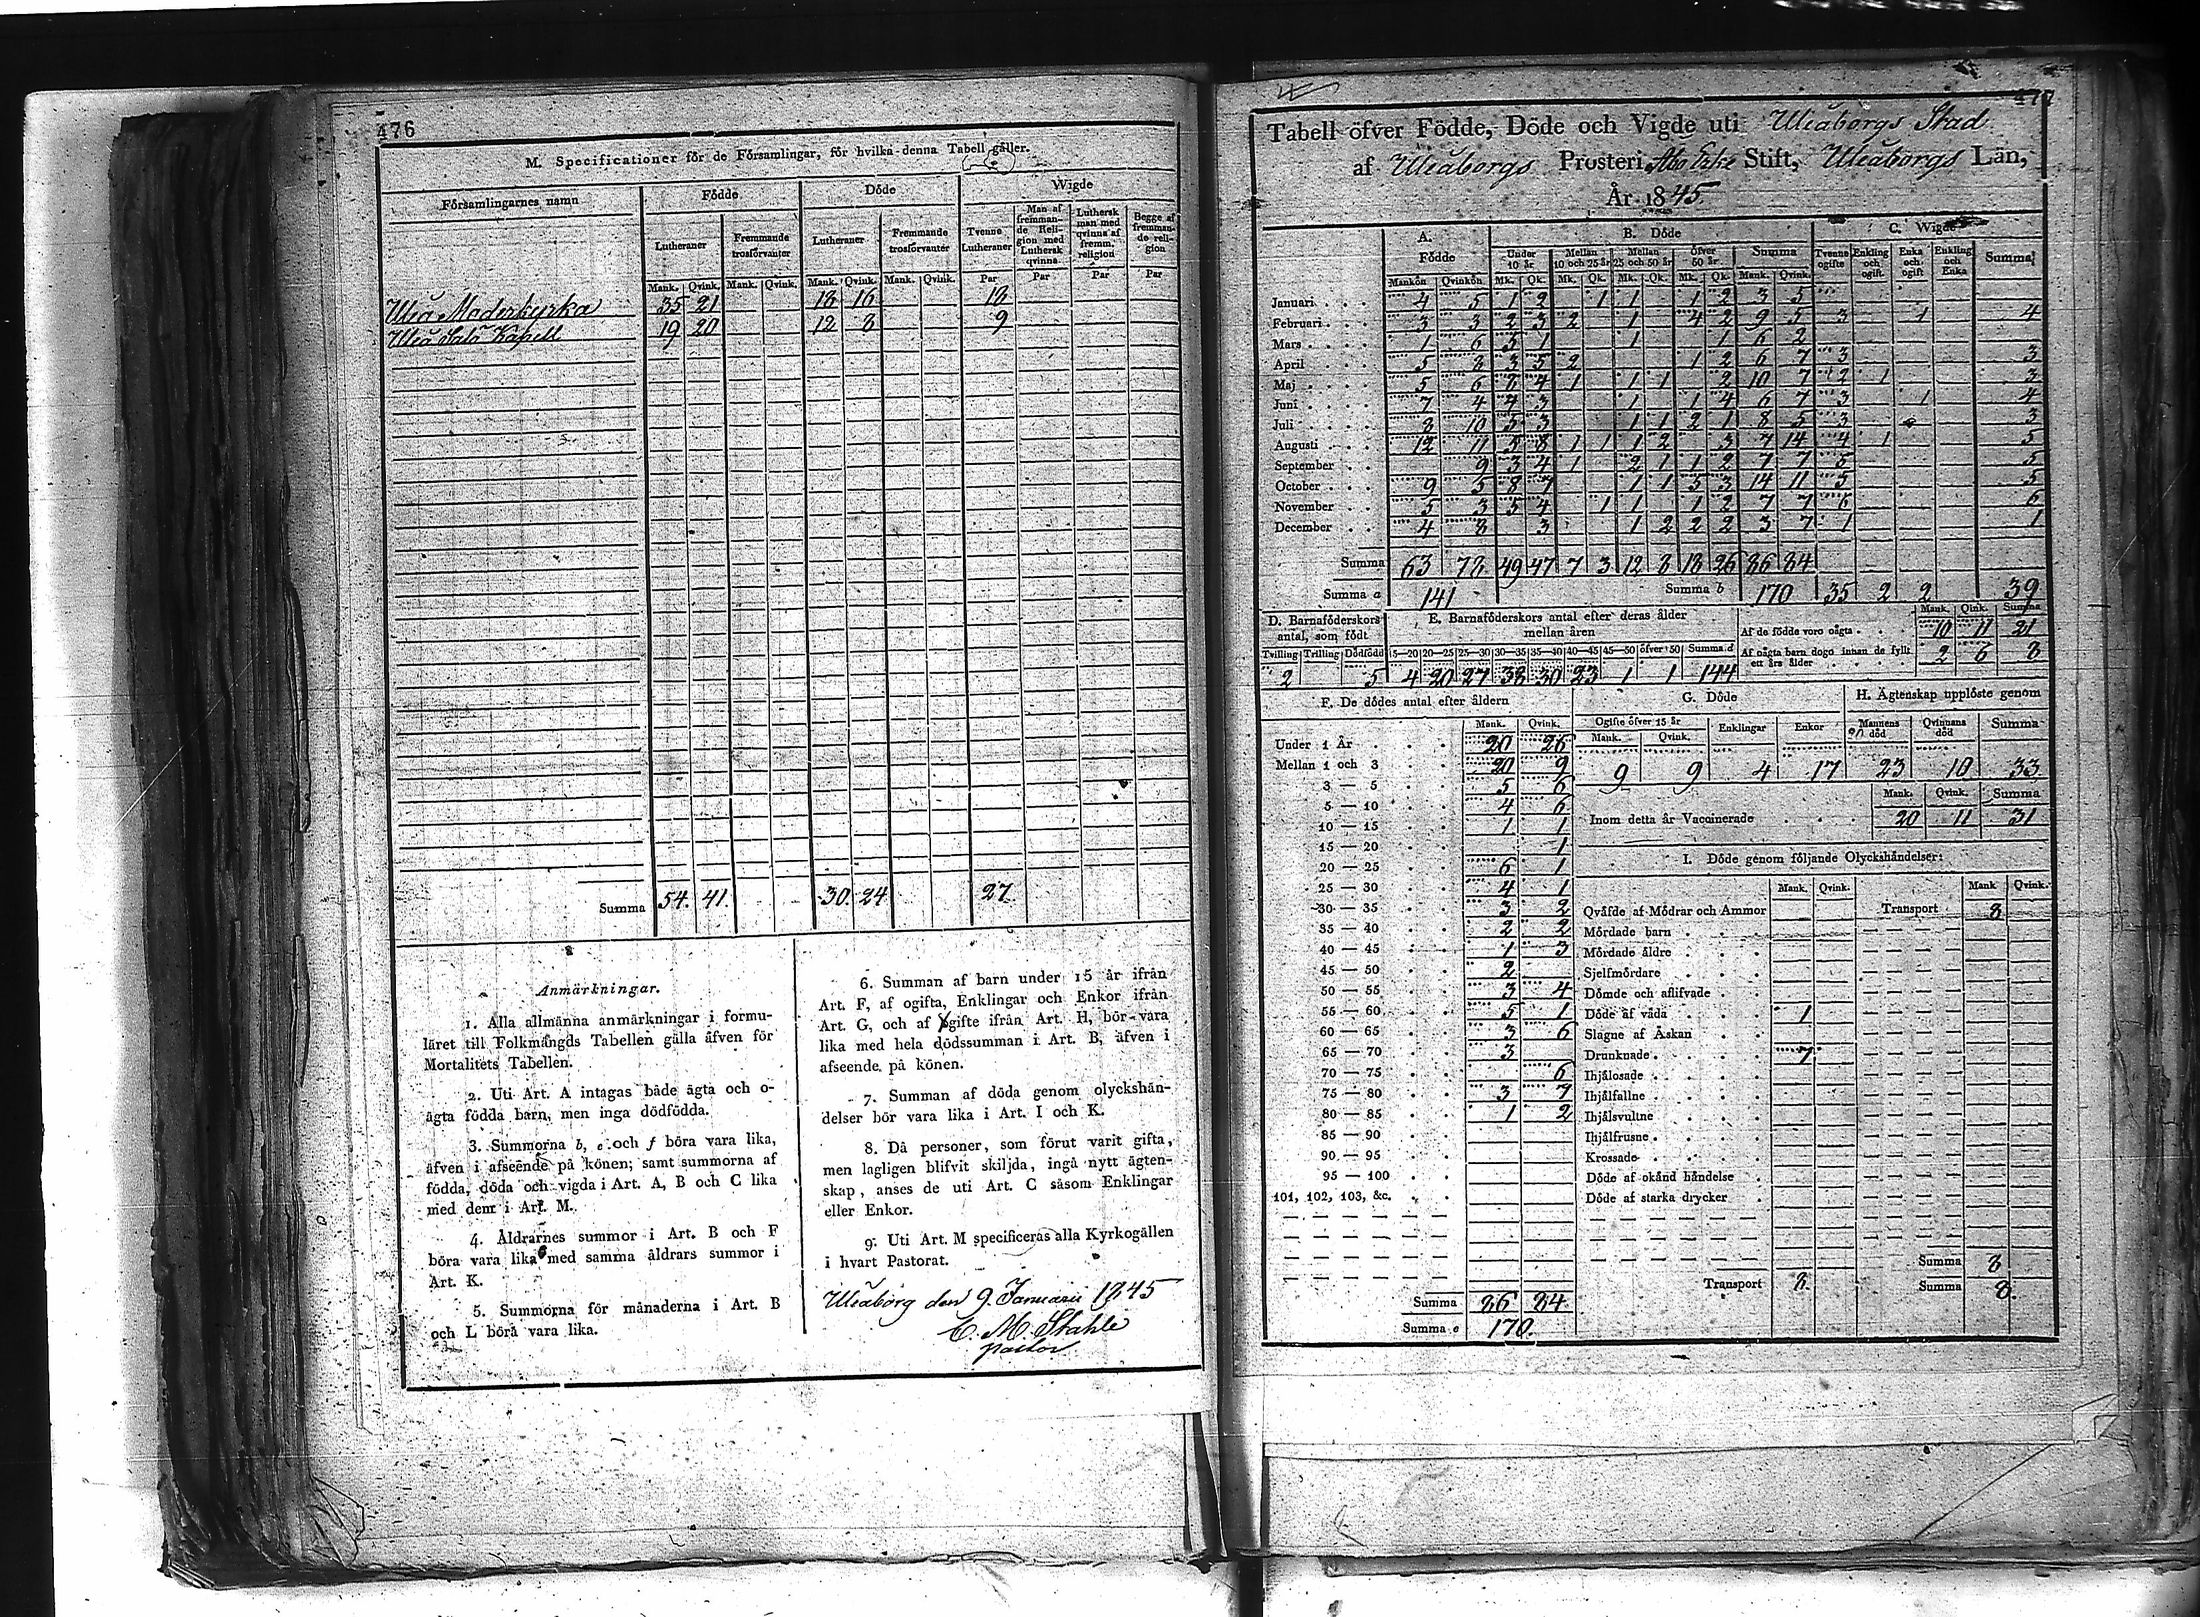 476
M. Specificationer för de Församlingar, för hvilka denna Tabell gäller.
Församlingarnes namn | Födde | Döde | Wigde
Lutheraner | Fremmande trosförvanter | Lutheraner | Fremmande trosförvanter | Tvenne Lutheraner | Man af fremmande Religion med Luthersk qvinna | Luthersk man med qvinna af fremm. religion | Begge af fremmande religion
Mank. | Qvink. | Mank. | Qvink. | Mank. | Qvink. | Mank. | Qvink. | Par | Par | Par | Par
Uleå Moderkyrka | 35 | 21 | 18 | 16 | 18
Uleå Salo Kapell | 19 | 20 | 12 | 8 | 9
Summa | 54. | 41. | 30. | 24 | 27
Anmärkningar.
1. Alla allmänna anmärkningar i formu-
läret till Folkmängds Tabellen gälla äfven för
Mortalitets Tabellen.
2. Uti Art. A intagas både ägta och o-
ägta födda barn, men inga dödfödda.
3. Summorna b, e och f böra vara lika,
äfven i afseende på könen; samt summorna af
födda, döda och vigda i Art. A, B och C lika
med dem i Art. M.
4. Åldrarnes summor i Art. B och F
böra vara lika med samma åldrars summor i
Art. K.
5. Summorna för månaderna i Art. B
och L böra vara lika.
6. Summan af barn under 15 år ifrån
Art. F, af ogifta, Enklingar och Enkor ifrån
Art. G, och af gifte ifrån Art. H, bör vara
lika med hela dödssumman i Art. B, äfven i
afseende på könen.
7. Summan af döda genom olyckshän-
delser bör vara lika i Art. I och K.
8. Då personer, som förut varit gifta,
men lagligen blifvit skiljda, ingå nytt ägten-
skap, anses de uti Art. C såsom Enklingar
eller Enkor.
9. Uti Art. M specificeras alla Kyrkogällen
i hvart Pastorat.
Uleåborg den 9. Januarii 1845
C. M. Stahle
pastor
477
Tabell öfver Födde, Döde och Vigde uti Uleåborgs Stad
af Uleåborgs Prosteri, Åbo Erke Stift, Uleåborgs Län,
År 1845.
A. Födde | B. Döde | C. Wigde
Under 10 år | Mellan 10 och 25 år | Mellan 25 och 50 år | öfver 50 år | Summa | Tvenne ogifte | Enkling och ogift | Enka och ogift | Enkling och Enka | Summa
Mankön | Qvinkön | Mk. | Qk. | Mk. | Qk. | Mk. | Qk. | Mk. | Qk. | Mank. | Qvink.
Januari | 4 | 5 | 1 | 2 | 1 | 1 | 1 | 2 | 3 | 5
Februari | 3 | 3 | 2 | 3 | 2 | 1 | 4 | 2 | 9 | 5 | 3 | 1 | 4
Mars | 1 | 6 | 5 | 1 | 1 | 1 | 6 | 2
April | 5 | 8 | 3 | 5 | 2 | 1 | 2 | 6 | 7 | 3 | 3
Maj | 5 | 6 | 8 | 4 | 1 | 1 | 1 | 2 | 10 | 7 | 2 | 1 | 3
Juni | 7 | 4 | 4 | 3 | 1 | 1 | 4 | 6 | 7 | 3 | 1 | 4
Juli | 8 | 10 | 5 | 3 | 1 | 1 | 2 | 1 | 8 | 5 | 3 | 3
Augusti | 12 | 11 | 5 | 8 | 1 | 1 | 1 | 2 | 3 | 7 | 14 | 4 | 1 | 5
September | 9 | 3 | 4 | 1 | 2 | 1 | 1 | 2 | 7 | 7 | 5 | 5
October | 9 | 5 | 8 | 7 | 1 | 1 | 5 | 3 | 14 | 11 | 5 | 5
November | 5 | 3 | 5 | 4 | 1 | 1 | 1 | 2 | 7 | 7 | 6 | 6
December | 4 | 8 | 3 | 1 | 2 | 2 | 2 | 3 | 7 | 1 | 1
Summa | 63 | 78 | 49 | 47 | 7 | 3 | 12 | 8 | 18 | 26 | 86 | 84
Summa a | 141 | Summa b | 170 | 35 | 2 | 2 | 39
D. Barnaföderskors antal, som födt | E. Barnaföderskors antal efter deras ålder mellan åren | Mank. | Qink. | Summa
Af de födde voro oägta | 10 | 11 | 21
Tvilling | Trilling | Dödfödd | 15—20 | 20—25 | 25—30 | 30—35 | 35—40 | 40—45 | 45—50 | öfver 50 | Summa d
Af oägta barn dogo innan de fyllt ett års ålder | 2 | 6 | 8
2 | 5 | 4 | 20 | 27 | 38 | 30 | 23 | 1 | 1 | 144
F. De dödes antal efter åldern
Mank. | Qvink.
Under 1 År | 20 | 26
Mellan 1 och 3 | 20 | 9
3 — 5 | 5 | 6
5 — 10 | 4 | 6
10 — 15 | 1 | 1
15 — 20 | 1
20 — 25 | 6 | 1
25 — 30 | 4 | 1
30 — 35 | 3 | 2
35 — 40 | 2 | 2
40 — 45 | 1 | 3
45 — 50 | 2
50 — 55 | 3 | 4
55 — 60 | 5 | 1
60 — 65 | 3 | 6
65 — 70 | 3
70 — 75 | 6
75 — 80 | 3 | 7
80 — 85 | 1 | 2
85 — 90
90 — 95
95 — 100
101, 102, 103, &c.
Summa | 86 | 84
Summa e | 170.
G. Döde | H. Ägtenskap upplöste genom
Ogifte öfver 15 år | Enklingar | Enkor | Mannens död | Qvinnans död | Summa
Mank. | Qvink.
9 | 9 | 4 | 17 | 23 | 10 | 33
Mank. | Qvink. | Summa
Inom detta år Vaccinerade | 20 | 11 | 31
I. Döde genom följande Olyckshändelser:
Mank. | Qvink. | Mank | Qvink.
Qväfde af Mödrar och Ammor | Transport | 8
Mördade barn
Mördade äldre
Sjelfmördare
Dömde och aflifvade
Döde af våda | 1
Slagne af Åskan
Drunknade | 7
Ihjälosade
Ihjälfallne
Ihjälsvultne
Ihjälfrusne
Krossade
Döde af okänd händelse
Döde af starka drycker
Summa | 8
Transport | 8. | Summa | 8.